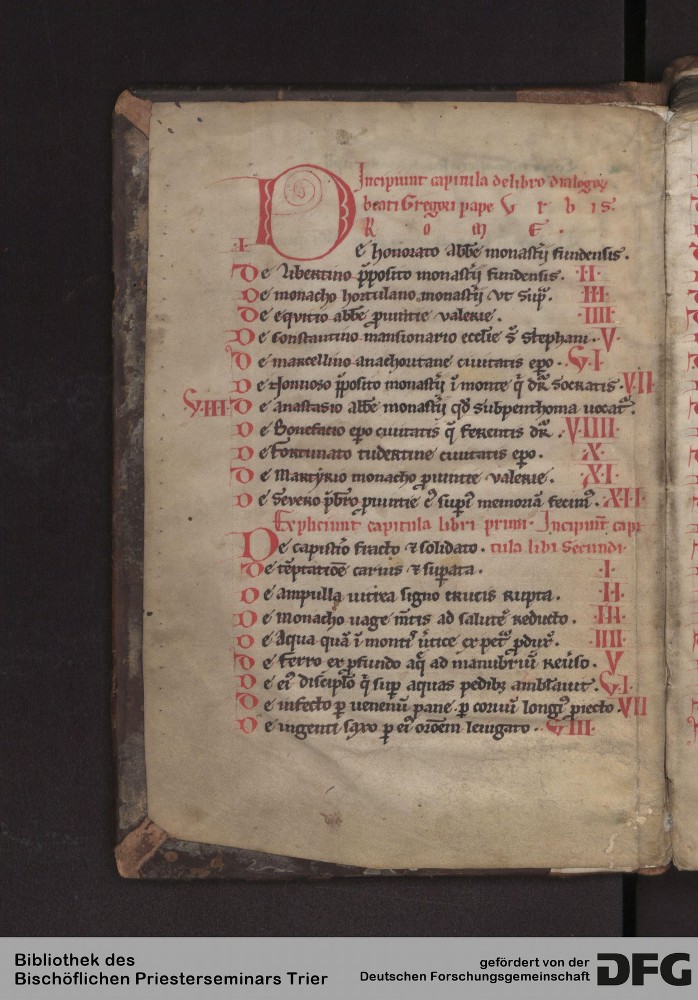 Incipiunt capitula de libro dialogoꝝ
beati Gregorii pape V r b i s.
R o m E .
.I. De honorato abb̄e monast̄ii fundensis.
De libertino p̄posito monast̄ii fundensis. .II.
De monacho hortulano monast̄ii vt sup̄. .III.
De eqvitio abb̄e ꝓuintie valerie. .IIII.
De constantino mansionario eccl̄ie s̄ stephani. .V.
De marcellino anachonitane ciuitatis ep̄o. .V.I.
De Nonnoso p̄posito monast̄ii ī monte q̄ dr̄ Socratis. .V.II
.V.III. De anastasio abb̄e monast̄ii qd̄ Subpenthoma uocat̄.
De Bonefacio ep̄o ciuitatis q̄ ferentis dr̄. .V.IIII.
De Fortunato tudertine ciuitatis ep̄o. .X.
De Martyrio monacho ꝓuintie valerie. .XI.
De Severo p̄bro ꝓuintie eꝰ supꝰ memoriā fecimꝰ. .XII.
Expliciunt capitula libri primi. Incipiūt capi
De capist̄io fracto ⁊ solidato. tula lib̄i Secundi.
De tēptatiōe carnis ⁊ suꝑata. .I.
De ampulla uitrea signo crucis rupta. .II.
De Monacho uage m̄tis ad salutē reducto. .III.
De Aqua quā ī montiꝰ ūtice ex pet̄ ꝓdux̄. .IIII.
De ferro ex ꝓfundo aq̄ ad manubriū reūso. .V
De eiꝰ discipl̄o q̄ sup̄ aquas pedibꝫ ambl̄auit. .V.I.
De infecto ꝑ uenenū pane ꝑ coruū longiꝰ ꝓiecto. .VII
De ingenti saxo ꝑ eiꝰ or̄oem leuigato. .V.III.
Bibliothek des
Bischöflichen Priesterseminars Trier
gefördert von der
Deutschen Forschungsgemeinschaft
DFG